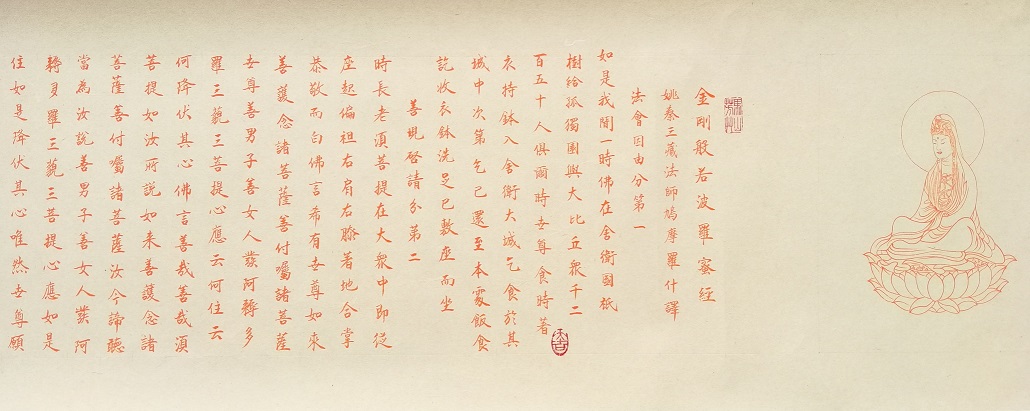 金剛般若波羅蜜經
姚秦三藏法師鳩摩羅什譯
法會因由分第一
如是我聞一時佛在舍衛國祇
樹給孤獨園與大比丘眾千二
百五十人俱爾時世尊食時著
衣持鉢入舍衛大城乞食於其
城中次第乞已還至本處飯食
訖收衣鉢洗足已敷座而坐
善現啓請分第二
時長老須菩提在大眾中即從
座起偏袒右肩右膝著地合掌
恭敬而白佛言希有世尊如來
善護念諸菩薩善付囑諸菩薩
世尊善男子善女人發阿耨多
羅三藐三菩提心應云何住云
何降伏其心佛言善哉善哉須
菩提如汝所說如来善護念諸
菩薩善付囑諸菩薩汝今諦聽
當為汝說善男子善女人發阿
耨多羅三藐三菩提心應如是
住如是降伏其心唯然世尊願